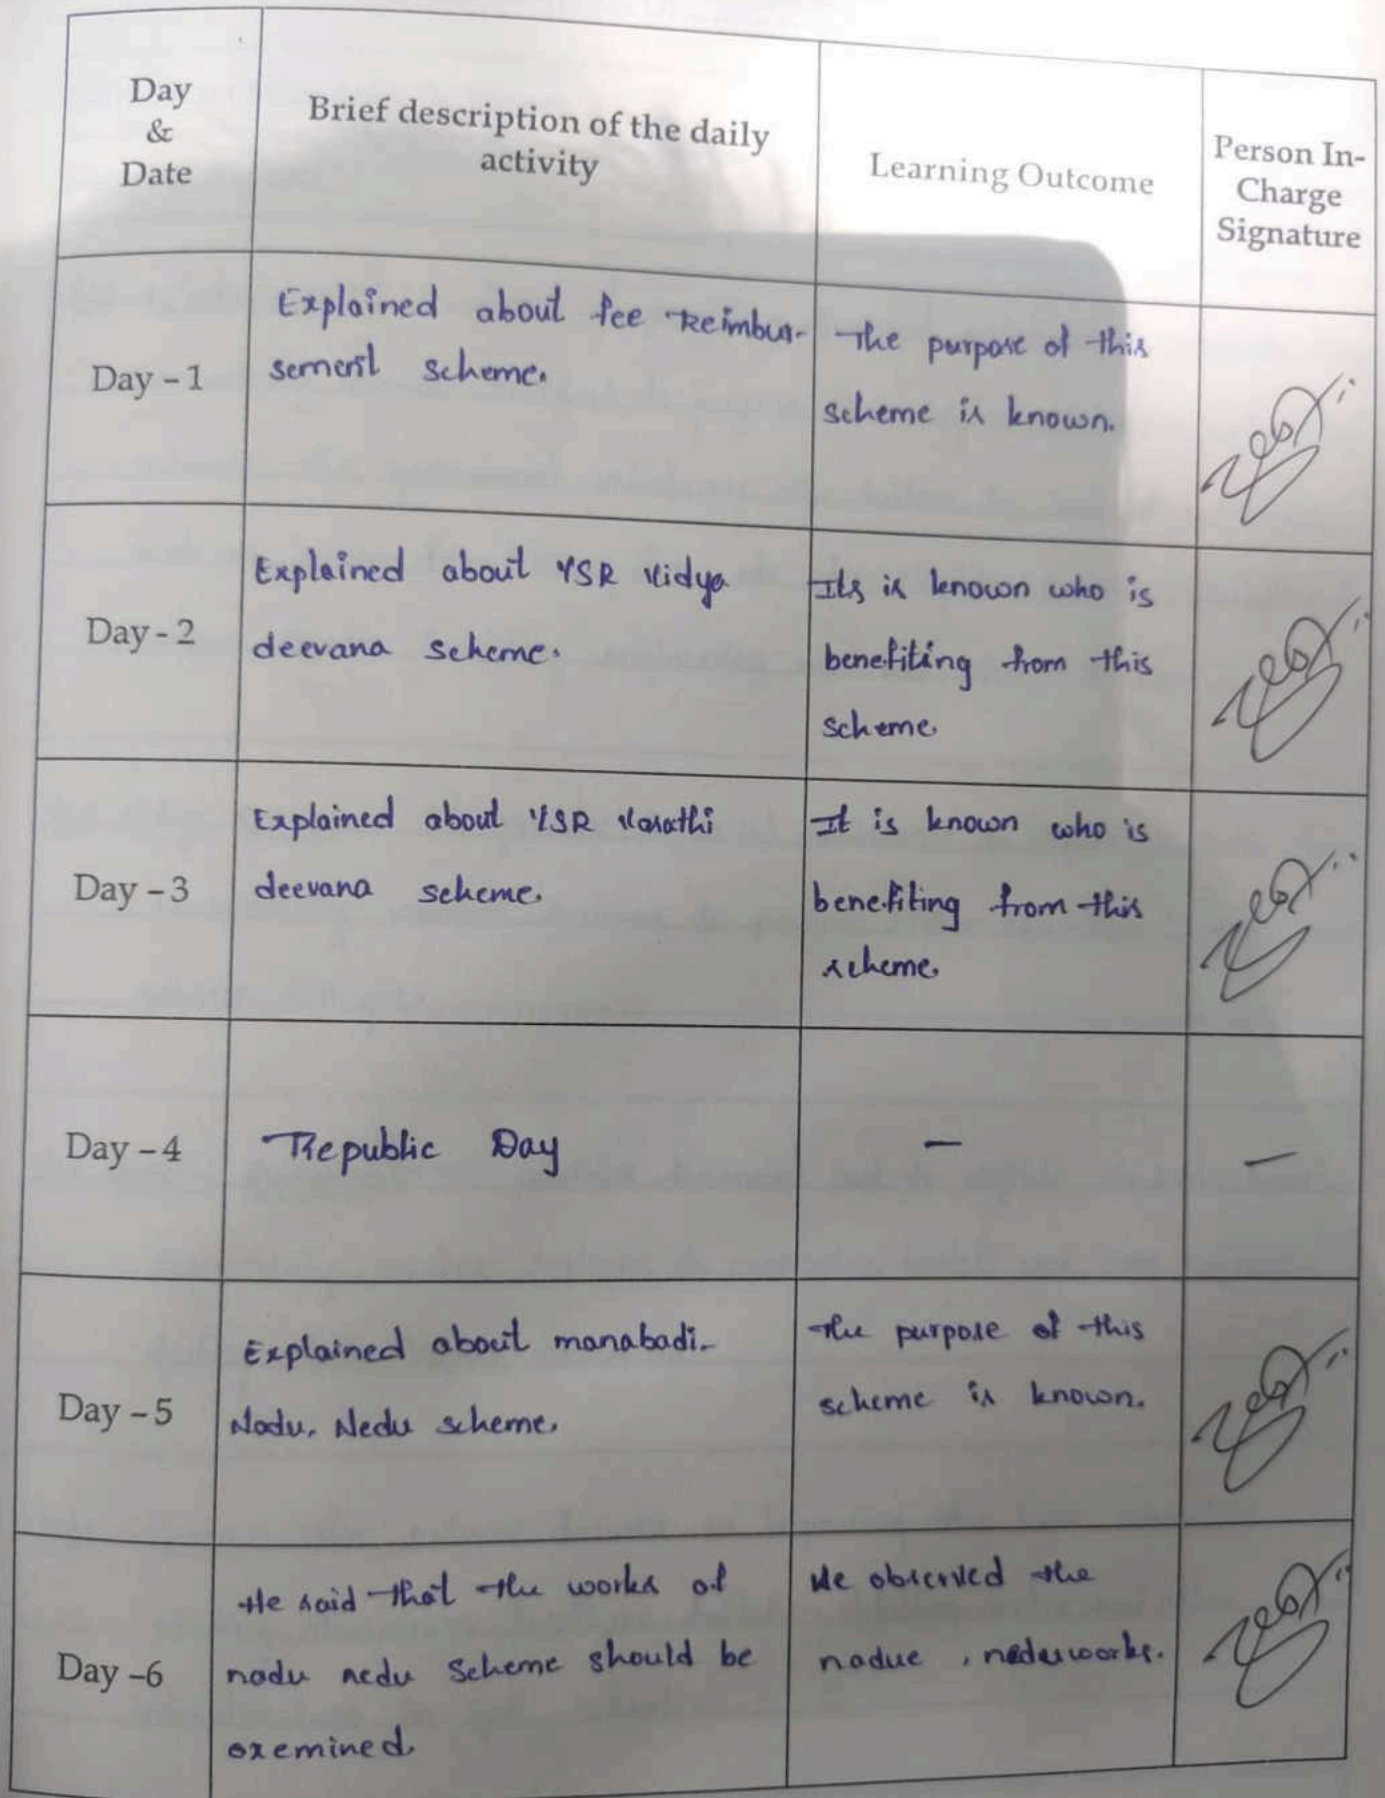 Day
&
Date
Brief description of the daily
activity
Learning Outcome
Person In-
Charge
Signature
Day - 1
Explained about fee Reimbur-
sement scheme.
The purpose of this
scheme is known.
Day - 2
Explained about YSR Vidya
deevana scheme.
Its is known who is
benefiting from this
scheme.
Day - 3
Explained about YSR Vasathi
deevana scheme.
It is known who is
benefiting from this
scheme.
Day - 4
Republic Day
-
-
Day - 5
Explained about manabadi-
Nadu, Nedu scheme.
The purpose of this
scheme is known.
Day -6
He said that the works of
nadu nedu scheme should be
exemined.
We observed the
nadue , nedu works.